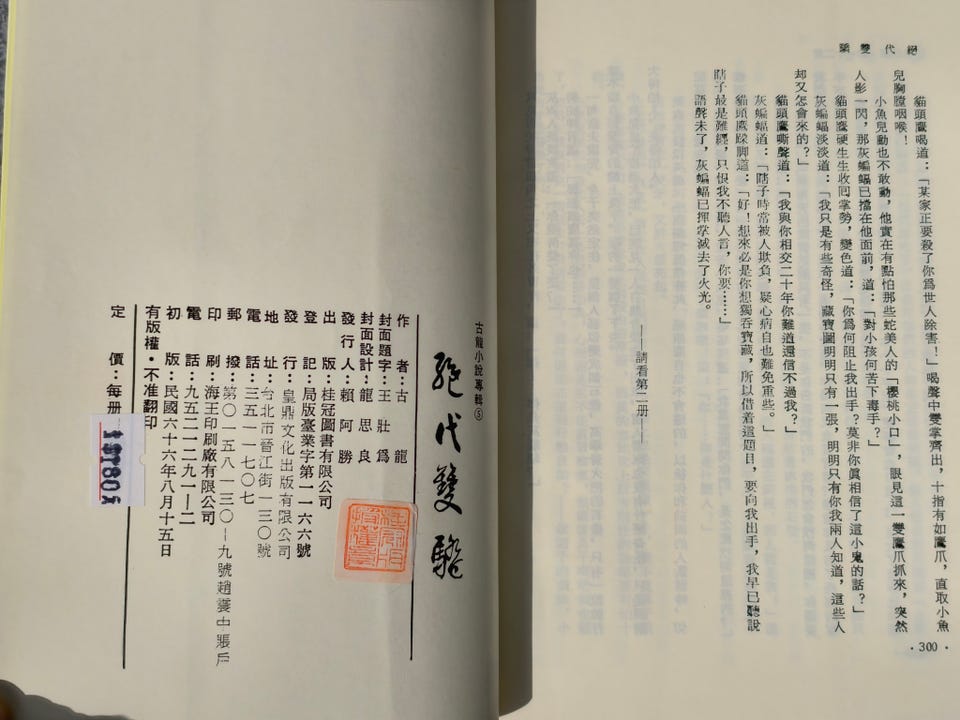 絕代雙驕
貓頭鷹喝道：「某家正要殺了你爲世人除害！」喝聲中雙掌齊出，十指有如鷹爪，直取小魚
兒胸膛咽喉！
小魚兒動也不敢動，他實在有點怕那些蛇美人的「櫻桃小口」，眼見這一雙鷹爪抓來，突然
人影一閃，那灰蝙蝠已擋在他面前，道：「對小孩何苦下毒手？」
貓頭鷹硬生生收回掌勢，變色道：「你爲何阻止我出手？莫非你眞相信了這小鬼的話？」
灰蝙蝠淡淡道：「我只是有些奇怪，藏寶圖明明只有一張，明明只有你我兩人知道，這些人
却又怎會來的？」
貓頭鷹嘶聲道：「我與你相交二十年你難道還信不過我？」
灰蝙蝠道：「瞎子時常被人欺負，疑心病自也難免重些。」
貓頭鷹跺脚道：「好！想來必是你想獨吞寶藏，所以借着這題目，要向我出手，我早已聽說
瞎子最是難纏，只恨我不聽人言，你要……」
語聲未了，灰蝙蝠已揮掌滅去了火光。
——請看第二册——
·300·
古龍小說專輯⑤
絕代雙驕
作者：古龍
封面題字：王壯爲
封面設計：龍思良
發行人：賴阿勝
出版：桂冠圖書有限公司
登記：局版臺業字第一一六六號
發行：皇鼎文化出版有限公司
地址：台北市晉江街一三〇號
電話：三五一一七〇七
郵撥：第〇一五八一三〇－九號趙震中賬戶
印刷：海王印刷廠有限公司
電話：九五二一二九一－二
初版：民國六十六年八月十五日
有版權·不准翻印
定價：每册